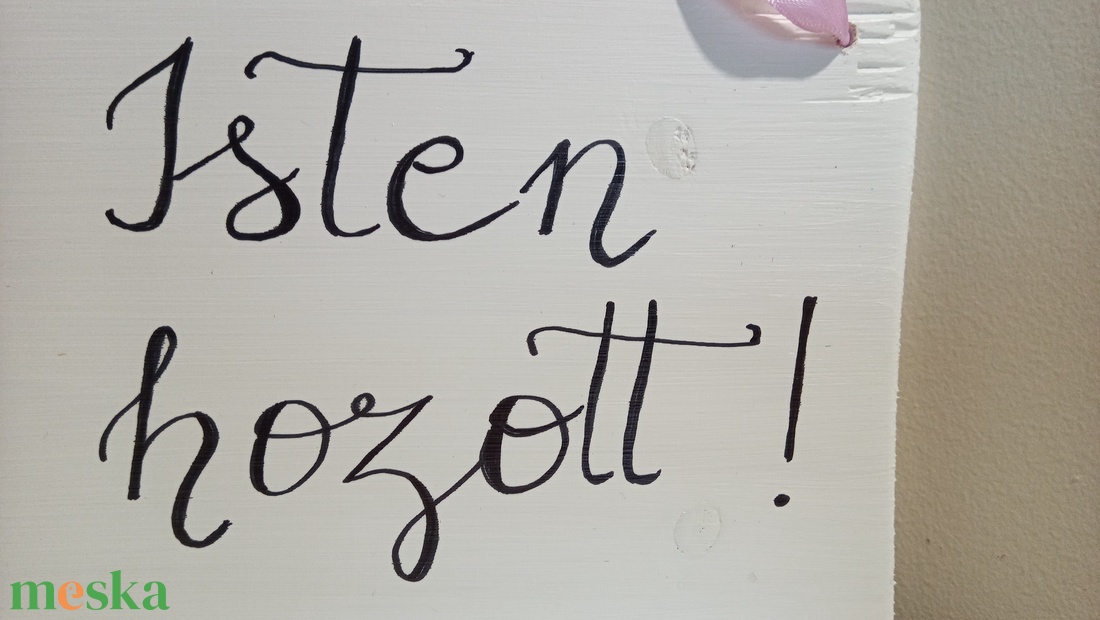 Isten
hozott!
meska